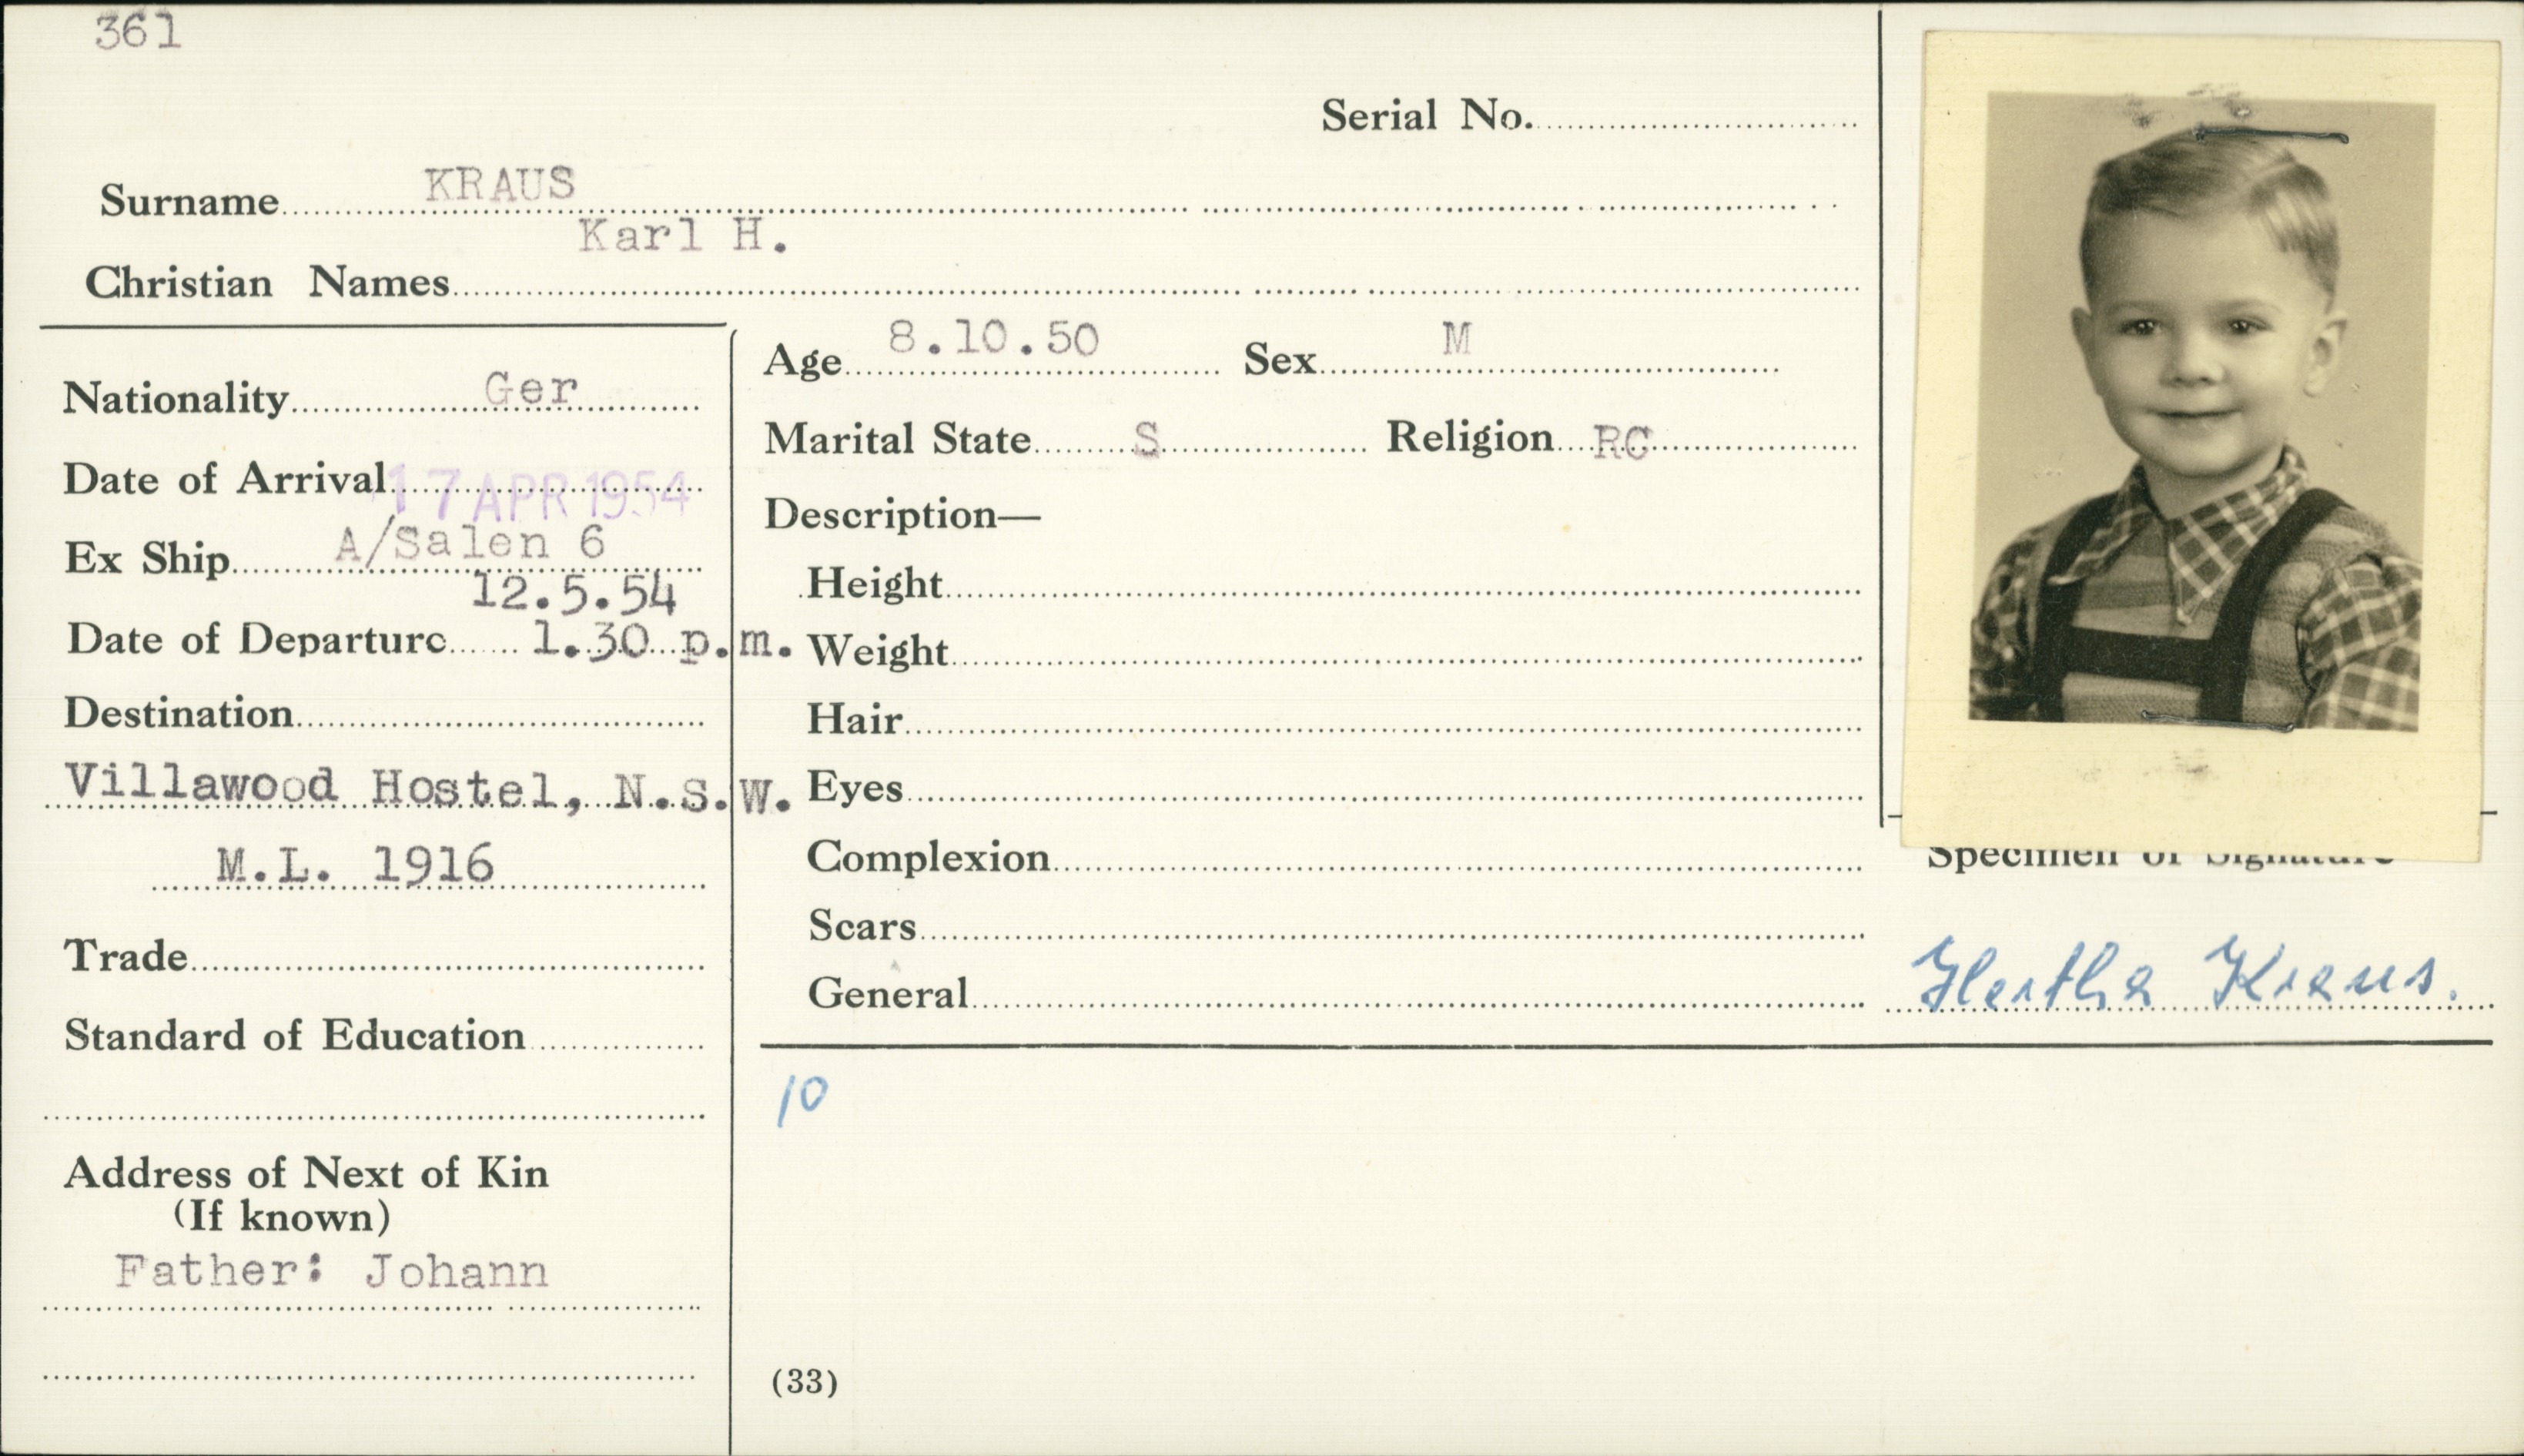 361
Serial No.
Surname KRAUS
Karl H.
Christian Names
Age 8.10.50 Sex M
Nationality Ger
Marital State S Religion RC
Date of Arrival 17 APR 1954
Description—
Ex Ship A/Salen 6
Height
12.5.54
Date of Departure 1.30 p.m.
Weight
Destination
Hair
Villawood Hostel, N.S.W.
Eyes
M.L. 1916
Complexion
Specimen of Signature
Scars
Trade
General
Hertha Kraus.
Standard of Education
10
Address of Next of Kin
(If known)
Father: Johann
(33)